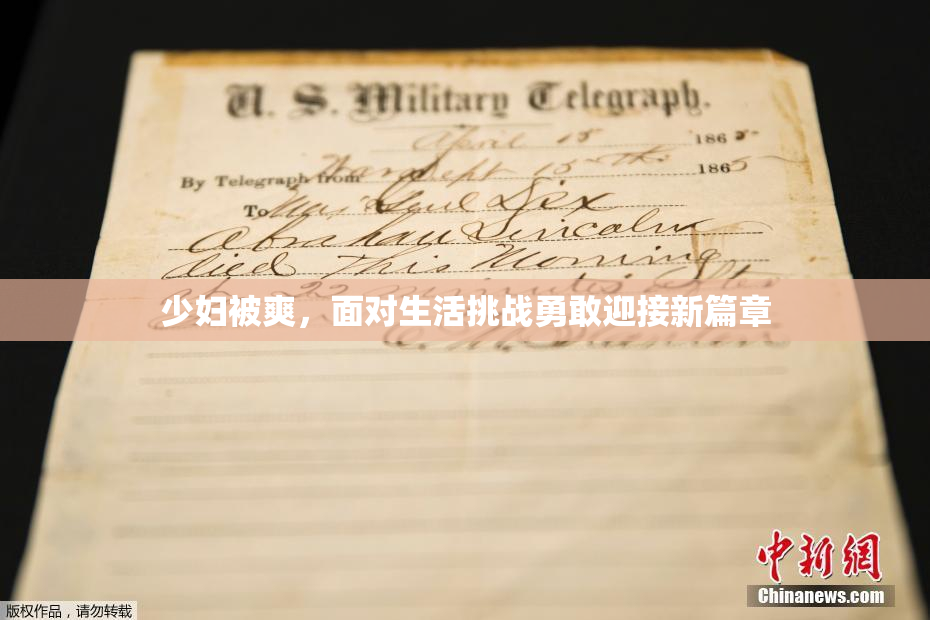 U. S. Military Telegraph.
April 15 1865
By Telegraph from War Dept 15th 1865
To Maj Genl Dix
Abraham Lincoln
died This Morning
at 22 minutes after
少妇被爽，面对生活挑战勇敢迎接新篇章
中新网
Chinanews.com
版权作品，请勿转载